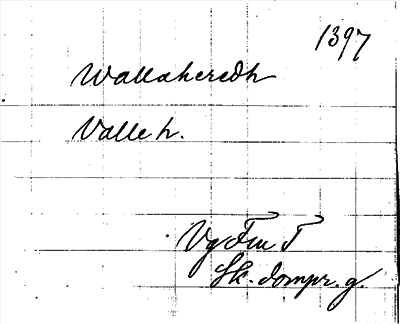 1397
Wallaheredh
Valle h.
Vg Fm T
Sk. dompr. g.